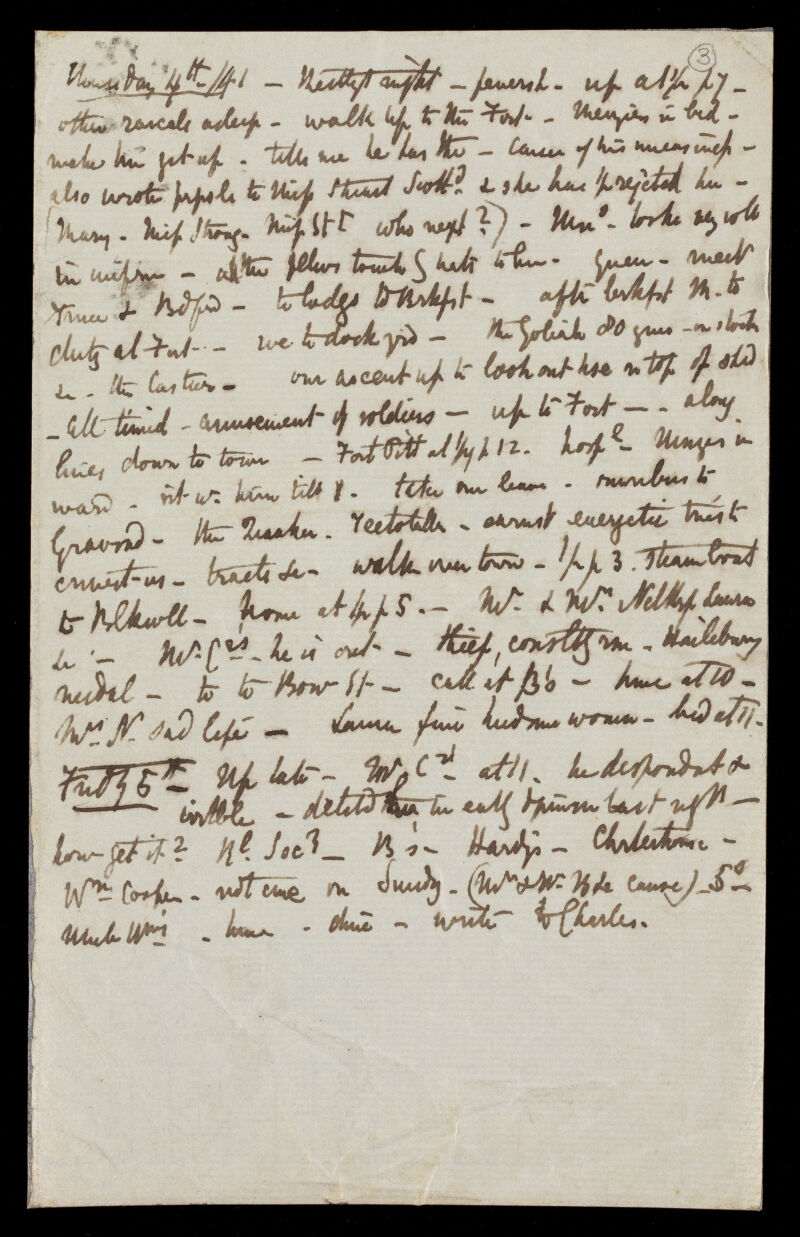 3
Thursday 4th /41 – Restless night – feverish – up at ½ p 7 –
other rascals asleep – walk up to the Fort – Menzies in bed –
make him get up – tells me he has the – cause of his uneasiness –
also wrote to Miss Stuart Scottd & she has rejected him –
(Mary – Miss Strong – Miss St who next?) – – looks very well
in uniform – all the fellows touch hats to him – meet
& Bdford – to lodgs to Brkfst – after brkfst M. to
duty at Fort – we to dock yrd – the Goliah 80 guns – on stocks
&c – the – our ascent up to look out hse on top of shed
– all timid – amusement of soldiers – up to Fort – – along
lines down to town – Fort Pitt at ½ p 12. hospl – Menzies in
ward – sit w. him till – take our leave – omnibus to
Gravesend – the Quaker – Teetotaller – earnest energetic tries to
convert us – tracts &c – walk over town – ½ p 3. steam boat
to Blkwll – home at ½ p 5. – Mr. & Mrs Laura
&c – Mr. C – he is out – thief, – Hailebury
medal – to to Bow St – call at B's – home at 10 –
Mrs N. sad life – Laura fine handsome woman – bed at 11 –
Fridy 5th – Up late – Mr C – at 11. he despondent &
– in early last night –
how get it? Rl. Socy – B's – Hardy's – Chrterhouse –
Wm Cooper – not come on Sundy – (Mr & Mr. B &c cause) –
Uncle Wms – home – dine – write to Charles.